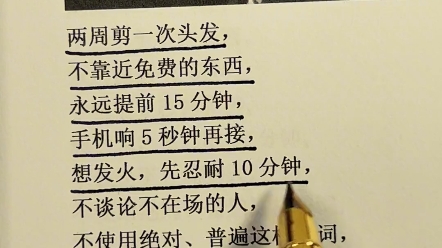 两周剪一次头发，
不靠近免费的东西，
永远提前 15 分钟，
手机响 5 秒钟再接，
想发火，先忍耐 10 分钟，
不谈论不在场的人，
不使用绝对、普遍这 词，